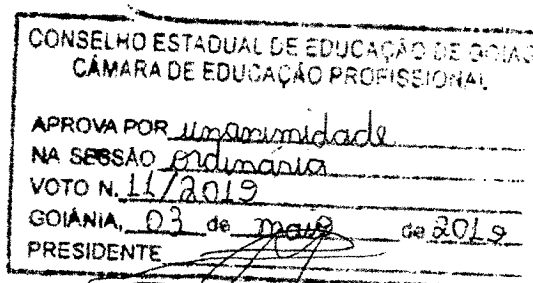 CONSELHO ESTADUAL DE EDUCAÇÃO DE GOIÁS
CÂMARA DE EDUCAÇÃO PROFISSIONAL
APROVA POR unanimidade
NA SESSÃO ordinária
VOTO N. 11/2019
GOIÂNIA, 03 de maio de 2019
PRESIDENTE